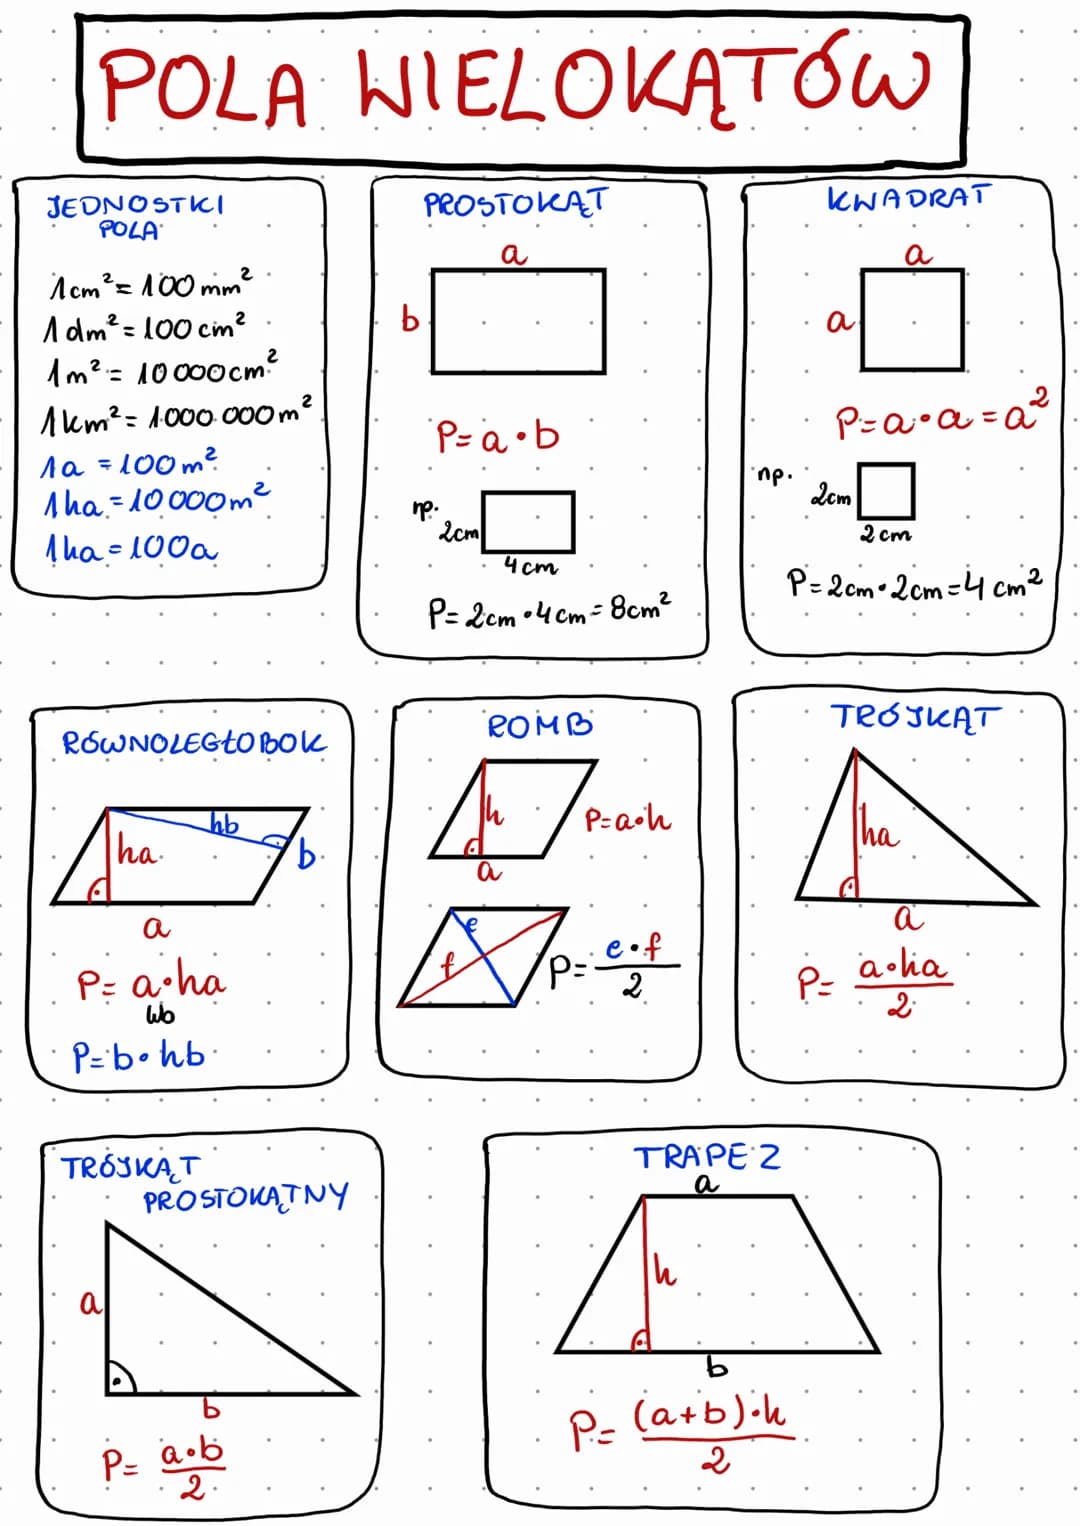 POLA WIELOKĄTÓW
JEDNOSTKI
POLA
1cm² = 100 mm²
1 dm² = 100 cm²
1 m² = 10 000 cm²
1 km² = 1.000.000 m²
1a = 100 m²
1 ha = 10 000 m²
1 ha = 100a
PROSTOKĄT
a
b
P= a • b
np.
2cm
4 cm
P= 2cm • 4cm = 8cm²
KWADRAT
a
a
P= a • a = a²
np.
2cm
2 cm
P= 2cm • 2cm = 4 cm²
RÓWNOLEGŁOBOK
hb
ha
b
a
P= a • ha
lub
P= b • hb
ROMB
h
P= a • h
a
e
f
P= e • f
2
TRÓJKĄT
ha
a
P= a • ha
2
TRÓJKĄT
PROSTOKĄTNY
a
b
P= a • b
2
TRAPEZ
a
h
b
P= (a+b) • h
2